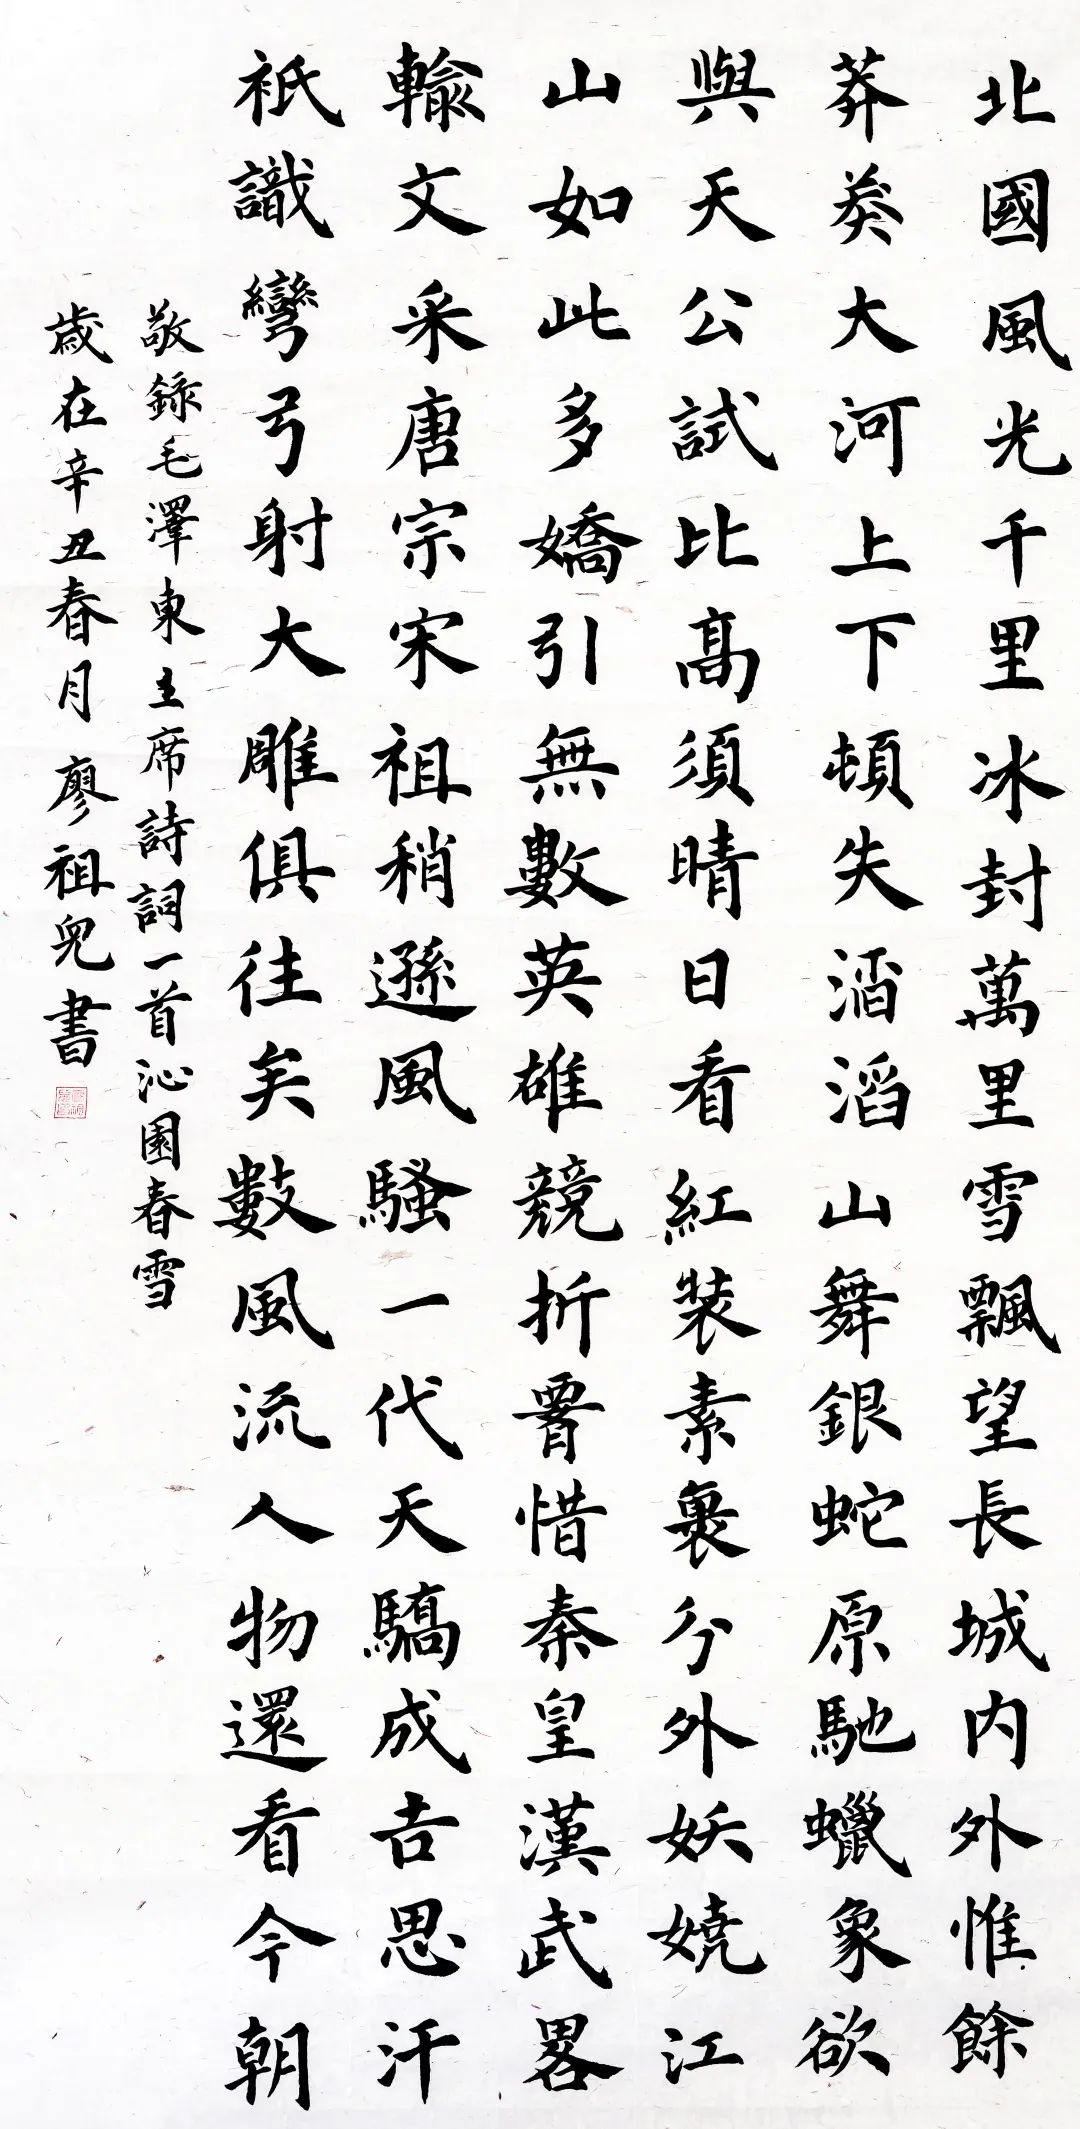 北國風光千里冰封萬里雪飄望長城内外惟餘
莽莽大河上下頓失滔滔山舞銀蛇原馳蠟象欲
與天公試比髙須晴日看紅裝素裹分外妖嬈江
山如此多嬌引無數英雄競折腰惜秦皇漢武畧
輸文采唐宗宋祖稍遜風騷一代天驕成吉思汗
衹識彎弓射大雕俱往矣數風流人物還看今朝
敬録毛澤東主席詩詞一首沁園春雪
歲在辛丑春月廖祖兒書